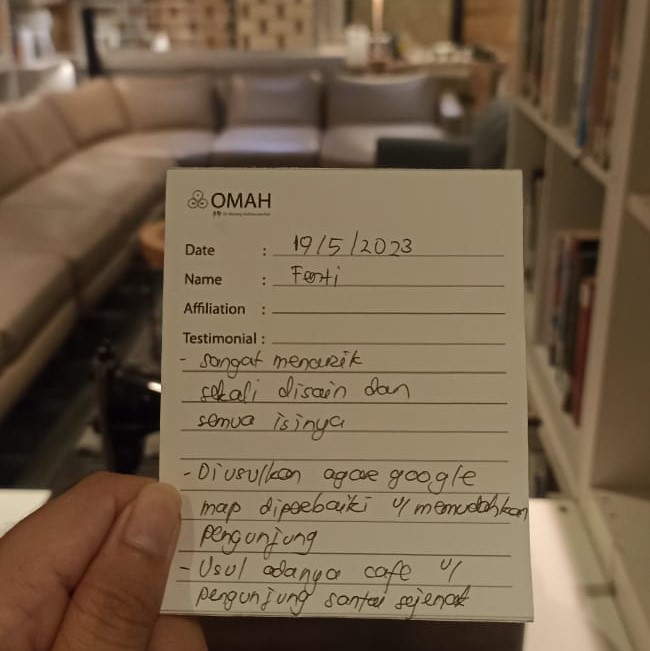 OMAH
Date : 19/5/2023
Name : Fenti
Affiliation :
Testimonial :
- sangat menarik
sekali disain dan
semua isinya
- Diusulkan agar google
map diperbaiki u/ memudahkan
pengunjung
- Usul adanya cafe u/
pengunjung santai sejenak